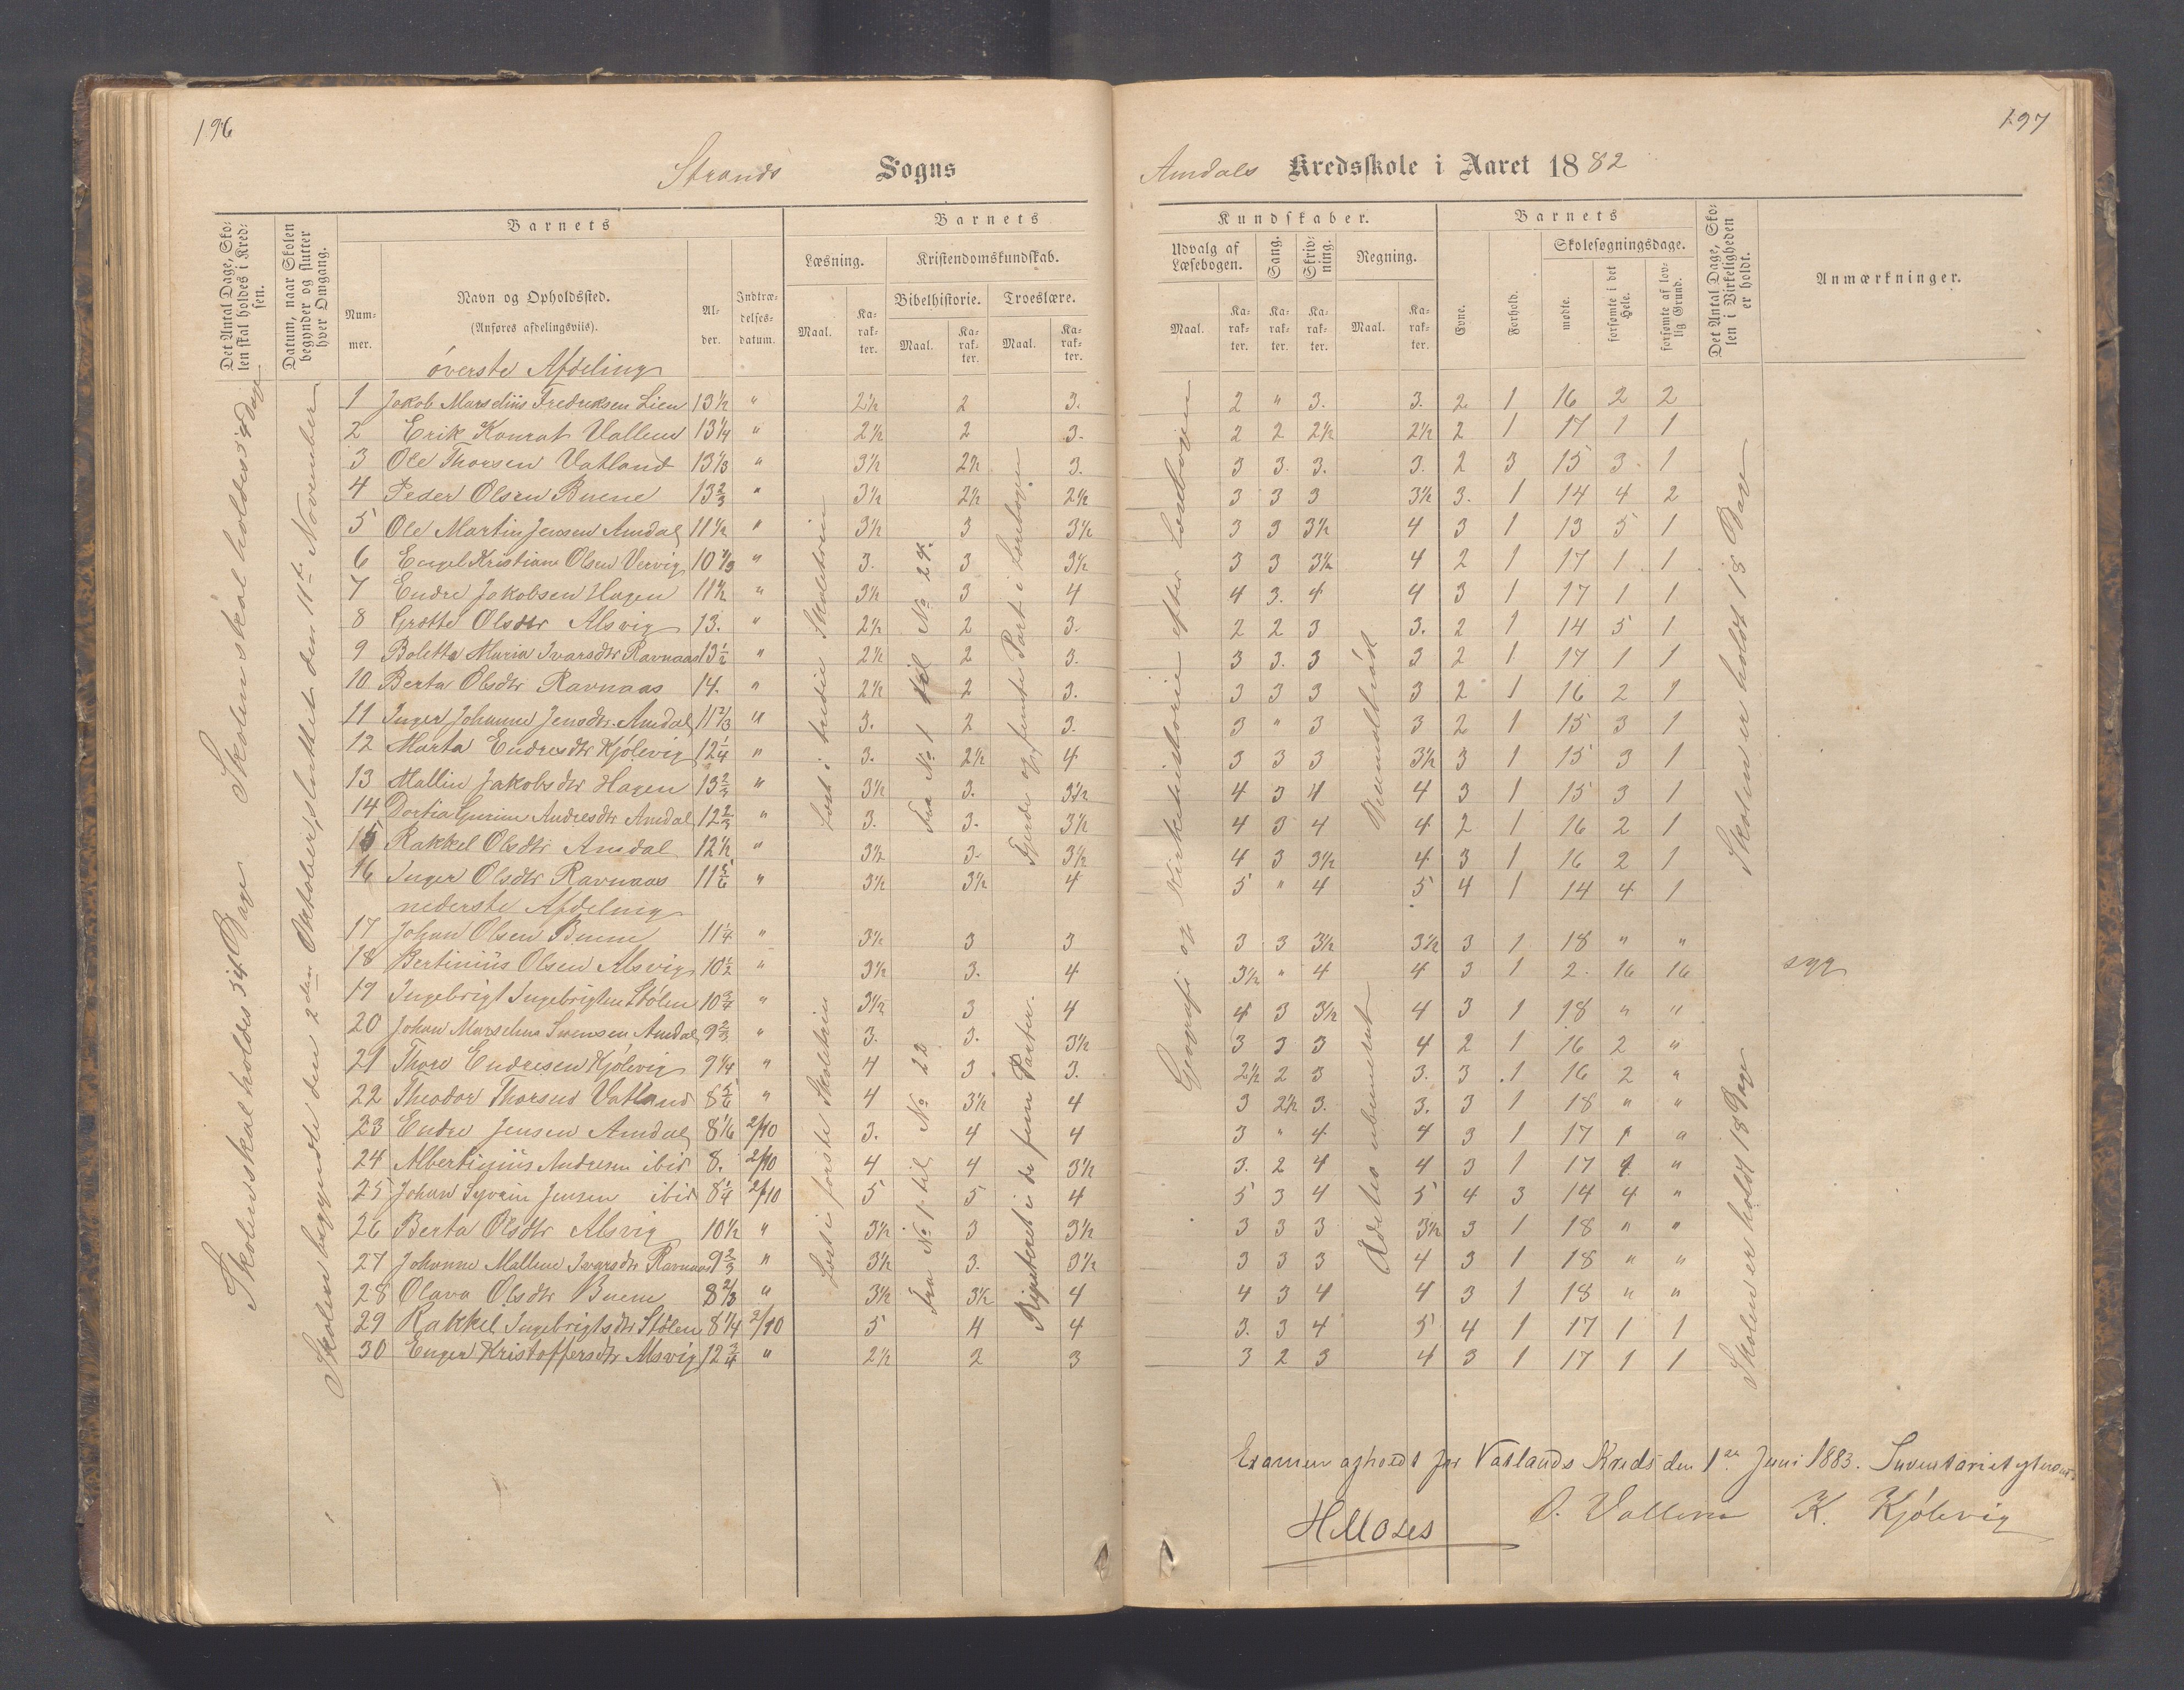 196
197
Strands Sogns
Amdals Kredsskole i Aaret 1882
Det Antal Dage, Skolen skal holdes i Kredsen.
Datum, naar Skolen begynder og slutter hver Omgang.
Barnets
Nummer.
Navn og Opholdssted.
(Anføres afdelingsviis).
Alder.
Indtrædelsesdatum.
Barnets
Læsning.
Kristendomskundskab.
Bibelhistorie.
Troeslære.
Maal.
Karakter.
Maal.
Karakter.
Maal.
Karakter.
Kundskaber.
Udvalg af Læsebogen.
Sang.
Skrivning.
Regning.
Maal.
Karakter.
Karakter.
Karakter.
Maal.
Karakter.
Barnets
Evne.
Forhold.
Skolesøgningsdage.
mødte.
forsømte i det Hele.
forsømte af lovlig Grund.
Det Antal Dage, Skolen i Virkeligheden er holdt.
Anmærkninger.
øverste Afdeling
1 Jakob Marselius Fredriksen Lien 13½ " 2½ 2 3. 2 " 3. 3. 2 1 16 2 2
2 Erik Konrat Vallene 13¼ " 2½ 2 3. 2 2 2½ 2½ 2 1 17 1 1
3 Ole Thorsen Vatland 13⅓ " 3½ 2½ 3. 3 3. 3. 3. 2 3 15 3 1
4 Peder Olsen Buene 13⅔ " 3½ 2½ 2½ 3 3 3 3½ 3. 1 14 4 2
5 Ole Martin Jensen Amdal 11½ " 3½ 3 3½ 3 3 3½ 4 3 1 13 5 1
6 Engel Kristiane Olsen Vervig 10⅓ " 3. 3 3½ 3 3 3½ 4 2 1 17 1 1
7 Endre Jakobsen Hagen 11½ " 3½ 3 4 4 3. 4 4 3 1 17 1 1
8 Grette Olsdtr Alsvig 13. " 2½ 2 3. 2 2 3 3. 2 1 14 5 1
9 Boletta Maria Ivarsdtr Ravnaas 13½ " 2½ 2 3. 3 3. 3 3 2 1 17 1 1
10 Berta Olsdtr Ravnaas 14. " 2½ 2 3. 3 3 3 3 2 1 16 2 1
11 Inger Johanne Jensdtr. Amdal 11⅔ " 3. 2 3. 3 " 3 3 2 1 15 3 1
12 Marta Endresdtr Kjölevig 12¼ " 3. 2½ 4 3 3 3 3½ 3 1 15 3 1
13 Mallin Jakobsdtr Hagen 13⅔ " 3½ 3. 3½ 4 3 4 4 3 1 15 3 1
14 Dortia Gurine Andresdtr Amdal 12⅔ " 3. 3. 3½ 4 3 4 4 2 1 16 2 1
15 Rakkel Olsdtr Amdal 12½ " 3½ 3. 3½ 4 3 3½ 4 3 1 16 2 1
16 Inger Olsdtr Ravnaas 11⅚ " 3½ 3½ 4 5 " 4 5 4 1 14 4 1
nederste Afdeling
17 Johan Olsen Buene 11¼ " 3½ 3 3 3 3 3½ 3½ 3 1 18 " "
18 Bertinius Olsen Alsvig 10½ " 3½ 3. 4 3½ " 4 4 3 1 2. 16 16 syg
19 Ingebrigt Ingebrigtsen Stölen 10¾ " 3½ 3 4 4 3 3½ 4 3 1 18 " "
20 Johan Marselius Svensen Amdal 9⅔ " 3. 3. 3½ 3 3 3 4 2 1 16 2 "
21 Thore Endresen Kjölevig 9¼ " 4 3 3. 2½ 2 3 3. 3 1 16 2 "
22 Theodor Thorsen Vatland 8⅚ " 4 3½ 4 3 2½ 3. 3. 3 1 18 " "
23 Endre Jensen Amdal 8⅙ 2/10 3. 4 4 3 " 4 4 3 1 17 1 "
24 Albertinius Andresen ibid 8. 2/10 4 4 3½ 3. 2 4 4 3 1 17 1 "
25 Johan Syvrin Jensen ibid 8¼ 2/10 5 5 4 5 3 4 5 4 3 14 4 "
26 Berta Olsdtr Alsvig 10½ " 3½ 3 3½ 3 3 3 3½ 3 1 18 " "
27 Johanne Malline Ivarsdtr Ravnaas 9⅔ " 3½ 3. 3½ 3 3 3 4 3 1 18 " "
28 Olava Olsdtr Buene 8⅔ " 3½ 3½ 4 4 3 4 4 3 1 18 " "
29 Rakkel Ingebrigtsdtr Stölen 8¼ 2/10 5 4 4 3. 3 4 5 4 1 17 1 1
30 Enger Kristoffersdtr Alsvig 12¾ " 2½ 2 3 3 2 3 4 3 1 17 1 1
Skolen skal holdes 34 Dage
Skolen skal holdes 34 Dage
Skolen begyndte den 2den Oktober, sluttet den 11te November
Læst i tredie Skoletrin
Fra No 1 til No 24.
Fjerde og femte Part i Læsebogen
Læst i förste Skoletrin
Fra No 1 til No 22
Repeteret i de fem Parter.
Geografi og Kirkehistorie efter Læsebogen
Benevntbröd
Adetio ubenevnt
Skolen er holdt 18 Dage
Skolen er holdt 18 Dage
Examen afholdt for Vatlands Kreds den 1ste Juni 1883. Inventariet eftersat.
H Moses O. Vallene K. Kjölevig